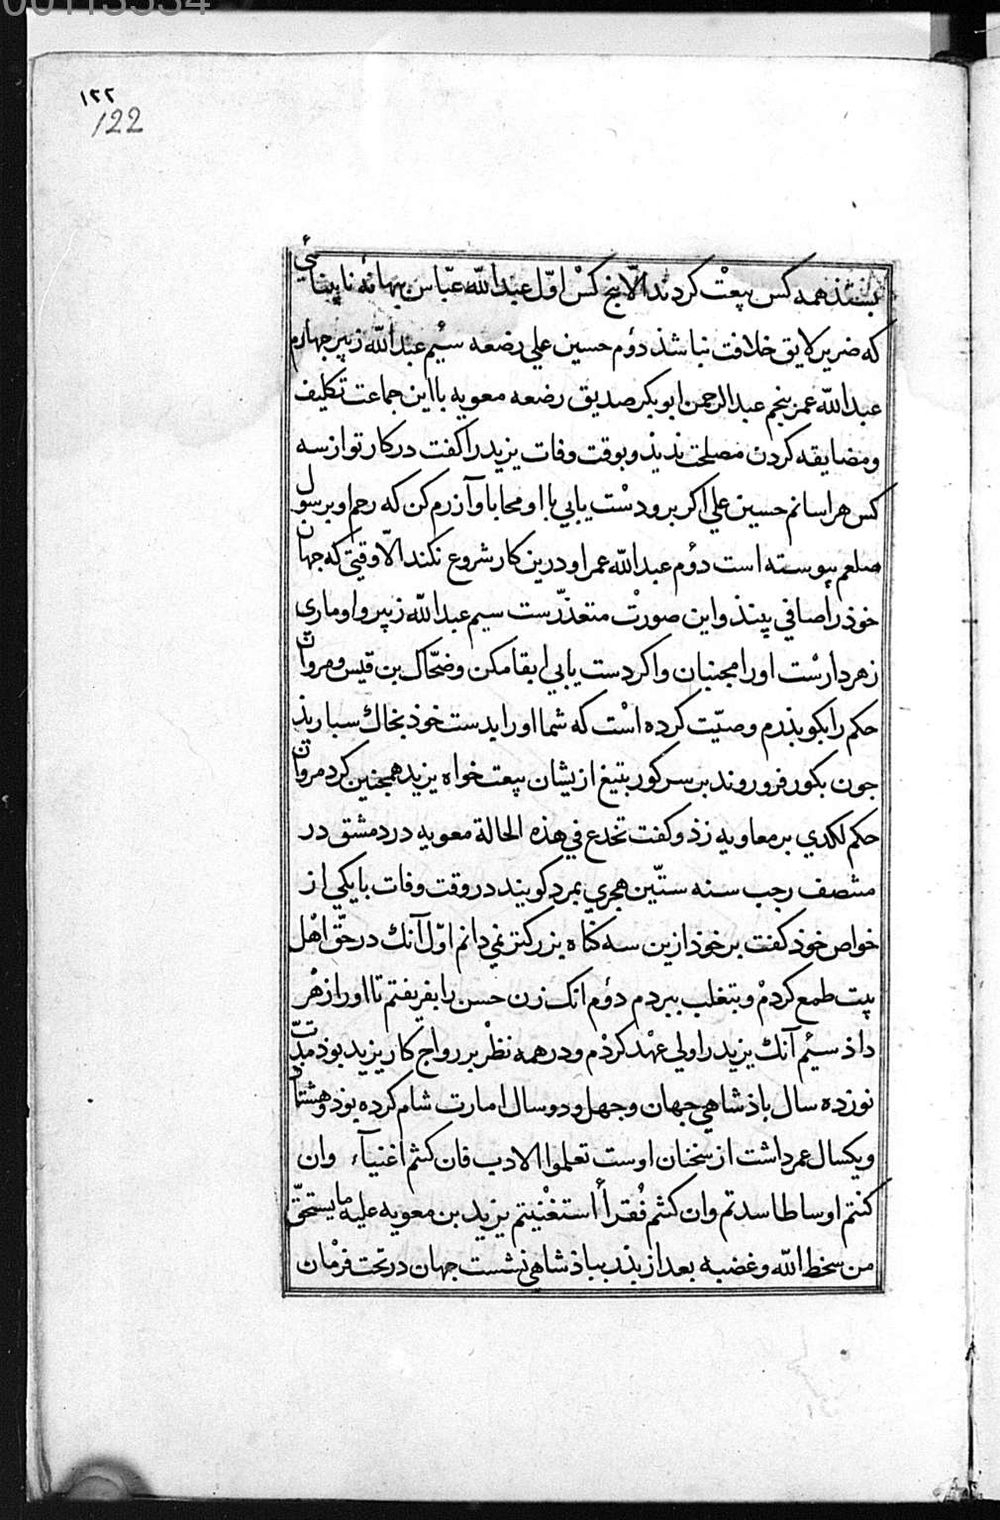 00113534
۱۲۲
122
بستند همه کس بیعْت کردند الّا بنج کسْ اوّل عبدالله عبّاس بهانهٔ نابینائی
که ضریر لایق خلافت نباشذ دوُم حسین علی رضعه سیُم عبدالله زبیر جهارم
عبدالله عمر بنجم عبدالرحمن ابوبکر صدیق رضعه معویه با این جماعت تکلیف
و مضایقه کردن مصلحت ندیذ و بوقت وفات یزید را کفت در کار تو از سه
کس هراسانم حسین علی اکر برو دسْت یابی با او محابا و آزرم کن که رحم او برسول
صلعم بیوسته است دوُم عبدالله عمر او درین کار شروع نکند الّا وقتی که جهان
خوذ را صافی بیند و این صورتْ متعذّرست سیم عبدالله زبیر و او ماری
زهردارسْت او را مجنبان و اکر دست یابی ابقا مکن و ضحّاک بن قیس و مروان
حکم را بکو بذرم وصیّت کرده اسْت که شما او را بدست خوذ بخاک سباریذ
جون بکور فرو روند بر سر کور بتیغ ازیشان بیعت خواه یزید همجنین کرد مروان
حکم لکدی بر معاویه زذ و کفت تخدع فی هذه الحالة معویه در دمشق در
منتصف رجب سنه ستّین هجری بمرد کویند در وقت وفات با یکی از
خواص خوذ کفت بر خوذ ازین سه کناه بزرکتر نمی دانم اوّل آنک در حقّ اهْل
بیت طمع کردمْ و بتغلب ببردم دوُم انک زن حسن را بفریفتم تا او را زهْر
داذ سیُم آنک یزید را ولی عهْد کردْم و در همه نظْر بر رواج کار یزید بوذ مدّت
نوزده سال باذشاهی جهان و جهل و دو سال امارت شام کرده بوذ و هشتاد
و یکسال عمر داشت از سخنان اوست تعلموا الادب فان کنتم اغنیآء وان
کنتم اوساطا سدتم وان کنتم فُقراءً استغْنیتم یزید بن معویه علیه ما یستحقّ
من سخط الله وغضبه بعد از بذر بباذشاهی نشست جهان در تحت فرْمان